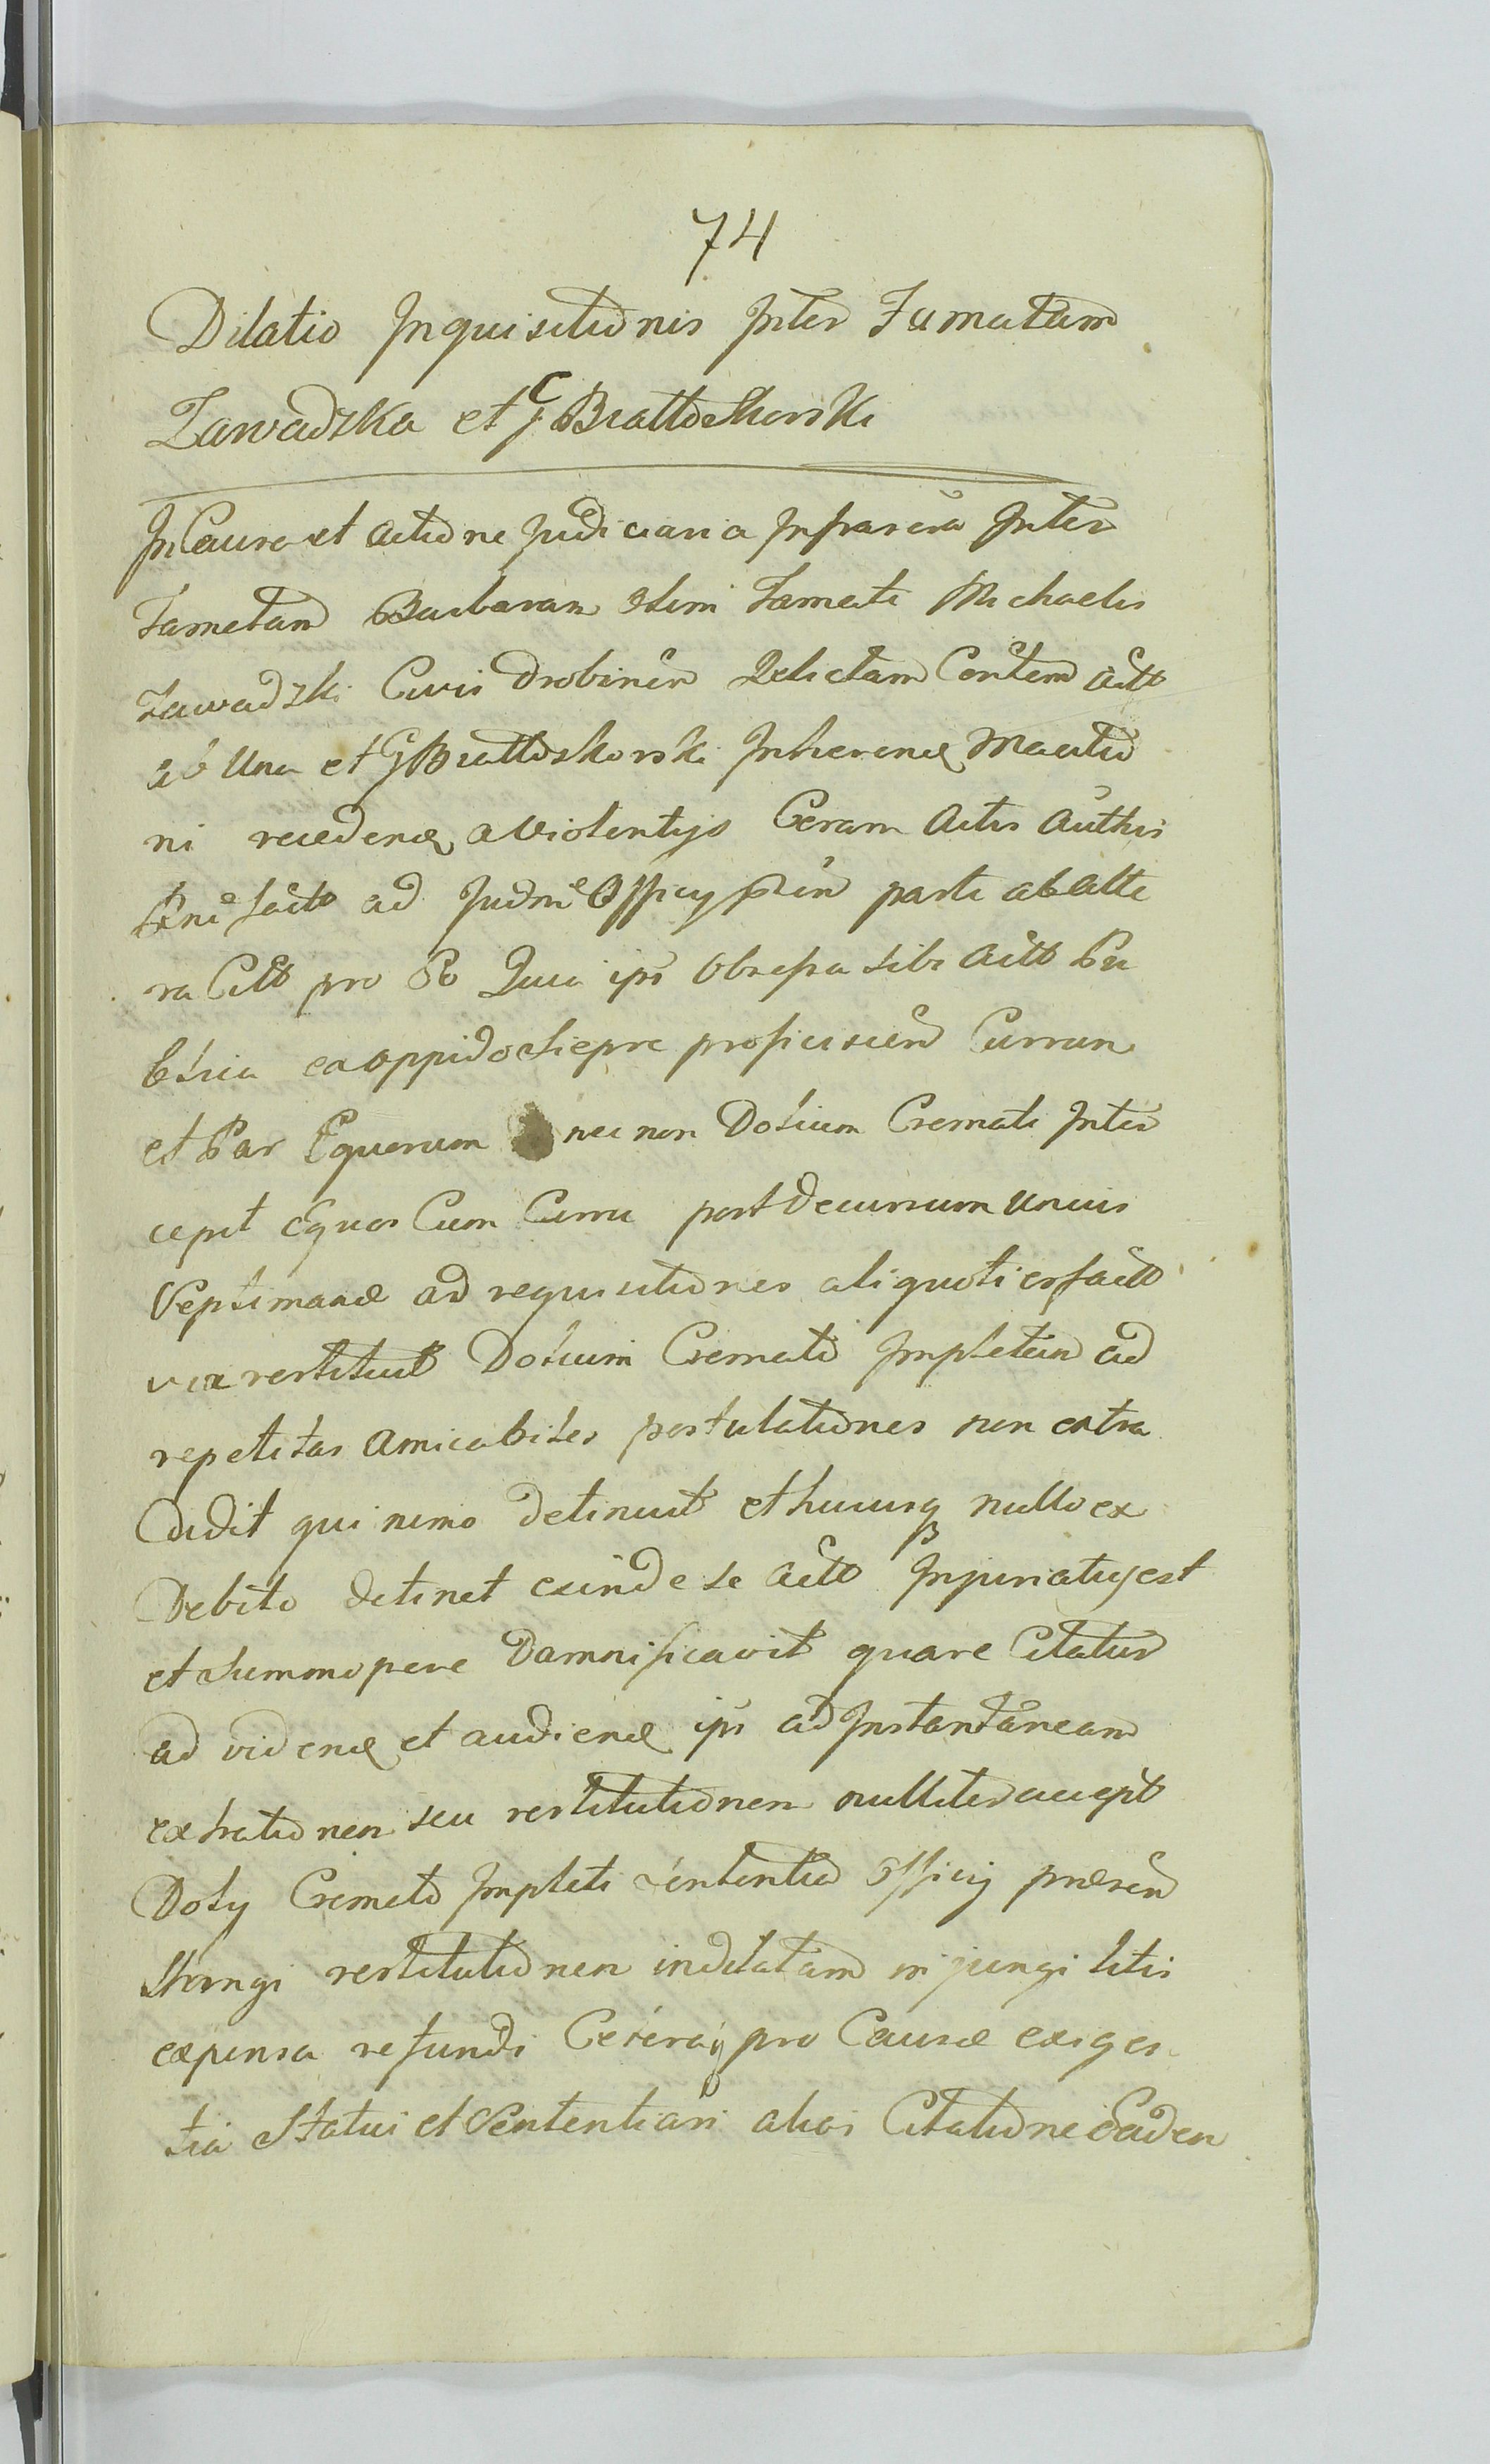 74
Dilatio Inquisitionis Inter Famatam
Zawadzka et G Białłoskorski
In Causa et actione Judiciaria Infrascra Inter
Famatam Barbaram Olim Famati Michaelis
Zawadzki Civis Drobinen Relictam Contem Act
ab Una et G Białłoskorski Inherend Manitio
ni recedend a violentys Ceram Actis Authis
Pne fact ad Judm Officy pn parte ab alte
ra Citt pro Eo Quia ips Obressa sibi Act Pu
blica ex oppido Siepre proficiscen Currum
et Par Equorum nec non Dolium Cremati Inter
cepit Equos Cum Curru post Decursum unius
Septimanæ ad requisitiones aliquoties fact
vix restituit Dolium Cremato Impletum ad
repetitas Amicabiles postulationes non extra
Cudit qui nimo detinuit et hucusq nullo ex
Debito detinet exinde se Act Injuriatus est
et Summopere Damnificavit quare Citatur
ad vidend et audiend ips ad Instantaneam
extrationem seu restitutionem nulliter accept
Doly Cremato Impleti Sententia Officij præsen
stringi restitutionem indilatam injungi litis
expensa refundi Ceteraq pro Causæ exigen
tia Statui et Sententiari alias Citatione Eadem